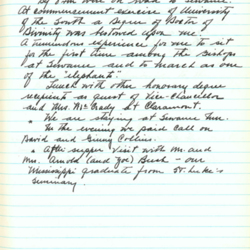 At commencement exercise of University
of the South a Degree of Doctor of
Divinity was bestowed upon me!
A tremendous experience for me to sit
for the first time among the Bishops
at Sewanee and to march as one
of the "elephants"
Lunch with other honorary degree
recipients as guest of Vice-Chancellor
and Mrs. McCrady at Claramont.
We are staying at Sewanee Inn.
In the evening we paid call on
David and Ginny Collins.
After supper visit with Mr. and
Mrs. Arnold (and Zoe) Bush - our
Mississippi graduate from St. Luke's
Seminary.